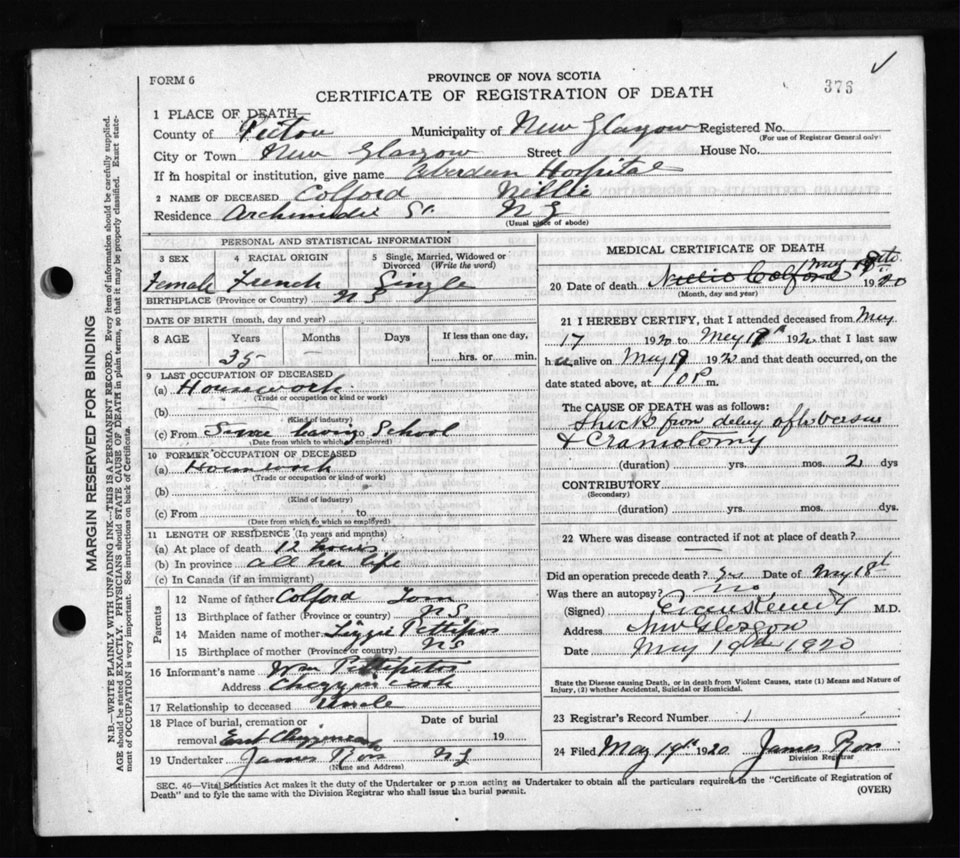 FORM 6
PROVINCE OF NOVA SCOTIA
CERTIFICATE OF REGISTRATION OF DEATH
376
1 PLACE OF DEATH—
County of Pictou Municipality of New Glasgow Registered No.
(For use of Registrar General only)
City or Town New Glasgow Street House No.
If in hospital or institution, give name Aberdeen Hospital
2 NAME OF DECEASED Colford Nellie
Residence Archimedie St. N G
(Usual place of abode)
PERSONAL AND STATISTICAL INFORMATION
3 SEX 4 RACIAL ORIGIN 5 Single, Married, Widowed or Divorced (Write the word)
Female French Single
BIRTHPLACE (Province or Country) N S
DATE OF BIRTH (month, day and year)
8 AGE Years Months Days If less than one day,
35 — hrs. or min.
9 LAST OCCUPATION OF DECEASED
(a) Housework
(Trade or occupation or kind or work)
(b)
(Kind of industry)
(c) From Since leaving School
(Date from which to which employed)
10 FORMER OCCUPATION OF DECEASED
(a) Housework
(Trade or occupation or kind of work)
(b)
(Kind of industry)
(c) From to
(Date from which to which so employed)
11 LENGTH OF RESIDENCE (In years and months)
(a) At place of death 12 hours
(b) In province all her life
(c) In Canada (if an immigrant)
Parents
12 Name of father Colford Tom
13 Birthplace of father (Province or country) N S
14 Maiden name of mother Lizzie
15 Birthplace of mother (Province or country) N S
16 Informant's name Wm
Address
17 Relationship to deceased Uncle
18 Place of burial, cremation or Date of burial
removal East 19
19 Undertaker James Ross N G
(Name and Address)
MEDICAL CERTIFICATE OF DEATH
20 Date of death Nellie Colford May 1920
(Month, day and year)
21 I HEREBY CERTIFY, that I attended deceased from May
17 1920 to May 19 1920 that I last saw
h alive on May 19 1920 and that death occurred, on the
date stated above, at 10 P m.
The CAUSE OF DEATH was as follows:
Shock from
& Craniotomy
(duration) yrs. mos. 2 dys
CONTRIBUTORY
(Secondary)
(duration) yrs. mos. dys.
22 Where was disease contracted if not at place of death?
Did an operation precede death? yes Date of May 18th
Was there an autopsy? No
(Signed) M.D.
Address New Glasgow
Date May 19th 1920
State the Disease causing Death, or in death from Violent Causes, state (1) Means and Nature of Injury, (2) whether Accidental, Suicidal or Homicidal.
23 Registrar's Record Number 1
24 Filed May 19th 1920 James Ross
Division Registrar
SEC. 46—Vital Statistics Act makes it the duty of the Undertaker or person acting as Undertaker to obtain all the particulars required in the "Certificate of Registration of
Death" and to fyle the same with the Division Registrar who shall issue the burial permit.
(OVER)
MARGIN RESERVED FOR BINDING
N.B.—WRITE PLAINLY WITH UNFADING INK—THIS IS A PERMANENT RECORD. Every item of information should be carefully supplied.
AGE should be stated EXACTLY. PHYSICIANS should STATE CAUSE OF DEATH in plain terms, so that it may be properly classified. Exact statement of OCCUPATION is very important. See instructions on back of Certificate.